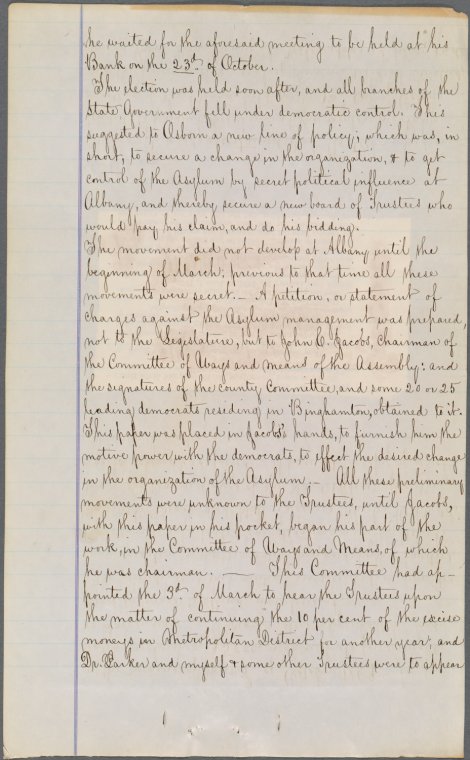 he waited for the aforesaid meeting to be held at his
Bank on the 23d of October.
The election was held soon after, and all branches of the
State Government fell under democratic control. This
suggested to Osborn a new line of policy; which was, in
short, to secure a change in the organization, & to get
control of the Asylum by secret political influence at
Albany, and thereby secure a new board of Trustees who
would pay his claim, and do his bidding.
The movement did not develop at Albany until the
beginning of March; previous to that time all these
movements were secret. — A petition, or statement of
charges against the Asylum management was prepared,
not to the Legislature, but to John C. Jacobs, chairman of
the Committee of Ways and means of the Assembly; and
the signatures of the county Committee, and some 20 or 25
leading democrats residing in Binghamton, obtained to it.
This paper was placed in Jacobs's hands, to furnish him the
motive power with the democrats, to effect the desired change
in the organization of the Asylum. — All these preliminary
movements were unknown to the Trustees, until Jacobs,
with this paper in his pocket, began his part of the
work, in the Committee of Ways and Means, of which
he was chairman. — This Committee had ap-
pointed the 3d of March to hear the Trustees upon
the matter of continuing the 10 per cent of the excise
moneys in Metropolitan District for another year; and
Dr. Parker and myself & some other Trustees were to appear